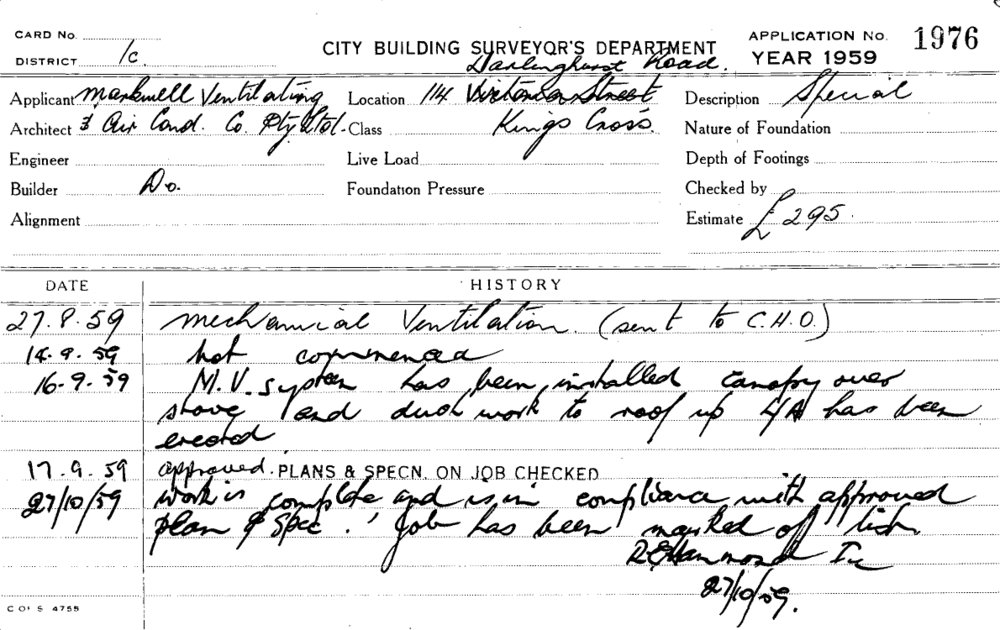 CARD No.
DISTRICT 1c.
CITY BUILDING SURVEYOR'S DEPARTMENT
APPLICATION No. 1976
YEAR 1959
Darlinghurst Road.
Applicant Markwell Ventilating Location 114 Victoria Street Description Special
Architect & Air Cond. Co. Pty Ltd. Class Kings Cross. Nature of Foundation
Engineer Live Load Depth of Footings
Builder Do. Foundation Pressure Checked by
Alignment Estimate £295.
DATE HISTORY
27.8.59 Mechanical Ventilation. (sent to C.H.O.)
14.9.59 Not commenced
16.9.59 M.V. system has been installed canopy over
stove and duct work to roof up has been
erected
17.9.59 approved. PLANS & SPECN. ON JOB CHECKED
27/10/59 work is complete and is in compliance with approved
plan & Spec. Job has been marked off
R E Hammond
27/10/59.
C OF S 4755